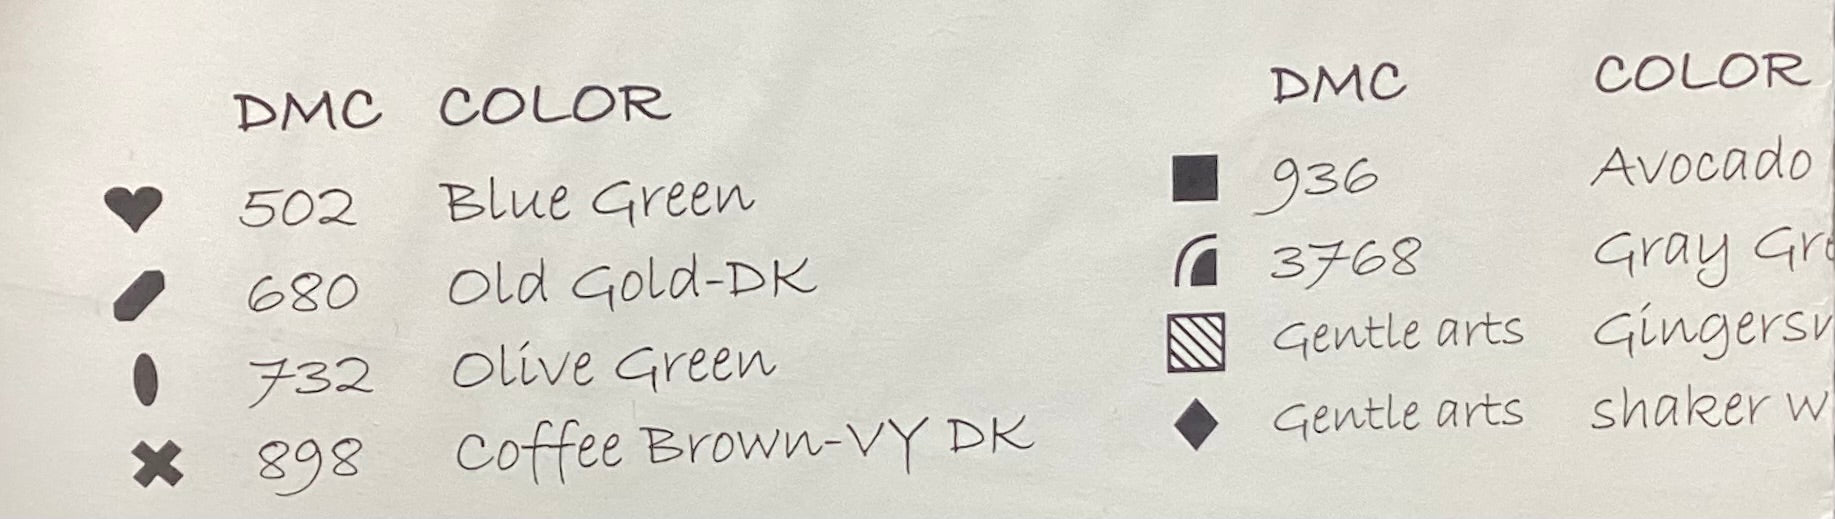 DMC COLOR
502 Blue Green
680 Old Gold-DK
732 Olive Green
898 Coffee Brown-VY DK
DMC COLOR
936 Avocado
3768 Gray
Gentle arts
Gentle arts shaker